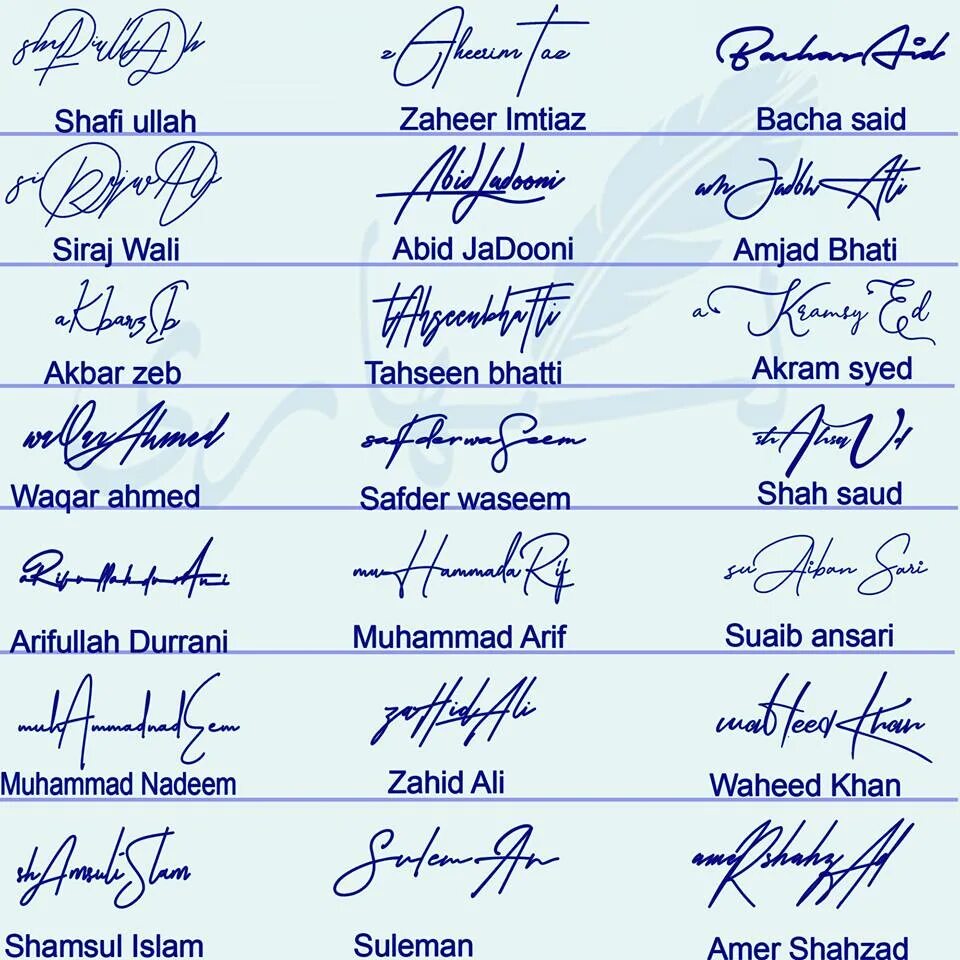 shaFiullAh zAheerimTaz BachasAid
Shafi ullah Zaheer Imtiaz Bacha said
siRajwAli Abid Jadooni amJadbhAti
Siraj Wali Abid JaDooni Amjad Bhati
aKbarzEb tAhseenbhaTti a KramsyEd
Akbar zeb Tahseen bhatti Akram syed
waQarAhmed safderwaSeem shAhsaUd
Waqar ahmed Safder waseem Shah saud
aRifullahdurrAni muHammadaRif suAiban Sari
Arifullah Durrani Muhammad Arif Suaib ansari
muhAmmadnadEem zaHidAli waHeedKhan
Muhammad Nadeem Zahid Ali Waheed Khan
shAmsuliSlam SulemAn ameRshahzAd
Shamsul Islam Suleman Amer Shahzad